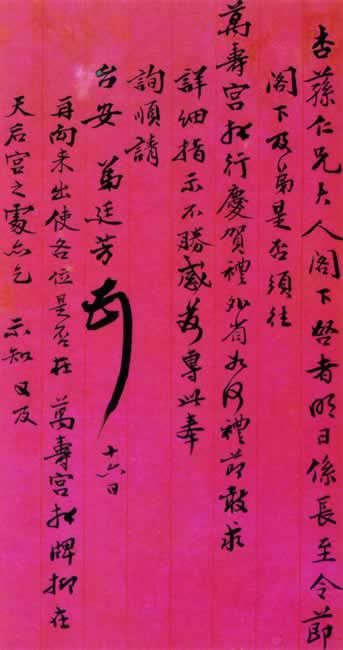 杏蓀仁兄大人閣下啓者明日係長至令節
閣下及弟是否須往
萬壽宮拜行慶賀禮外省如何禮節敢求
詳細指示不勝感荷專此奉
詢順請
台安 弟廷芳 十六日
再向来出使各位是否在 萬壽宮拜牌抑在
天后宮之處亦乞 示知 又及